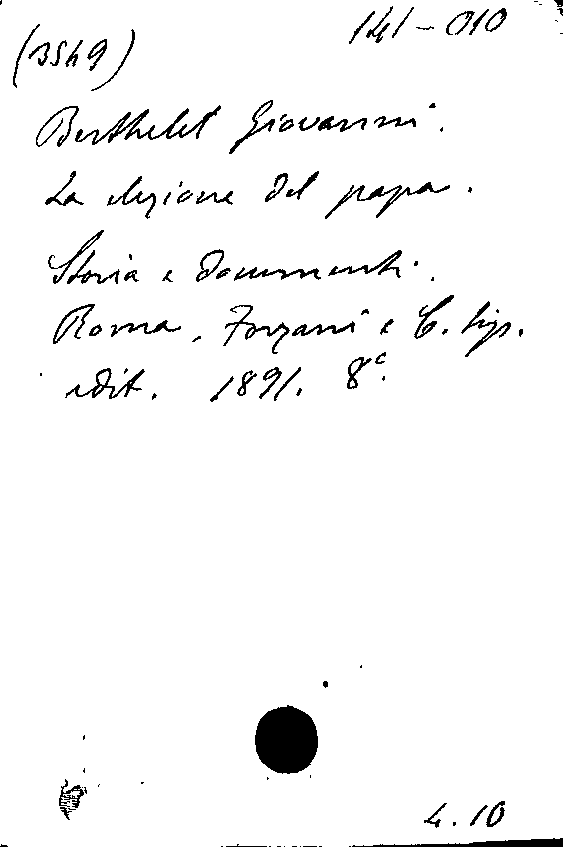 141-010
(3549)
Berthelet Giovanni.
La elezione del papa.
Storia e documenti.
Roma, Forzani e C. tip.
edit. 1891. 8°.
4.10